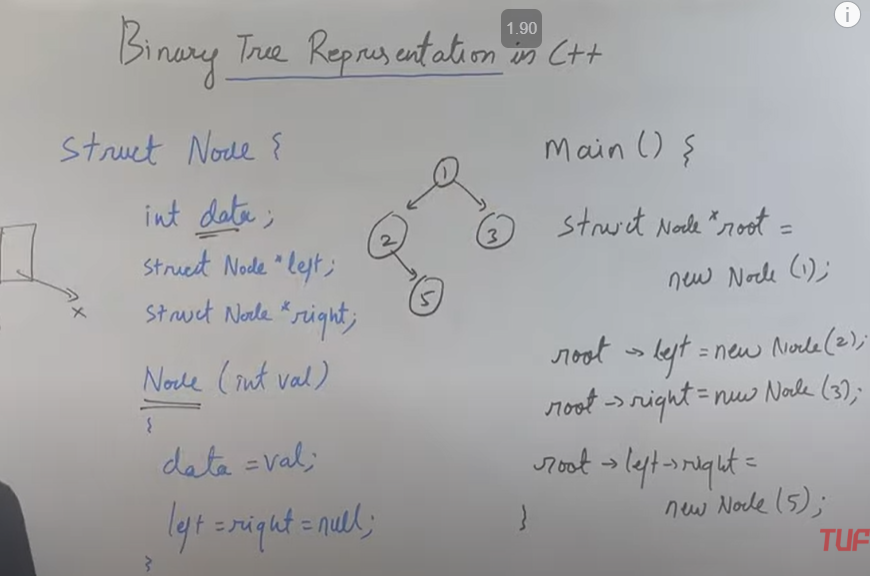 1.90
i
Binary Tree Representation in C++
struct Node {
int data;
struct Node *left;
struct Node *right;
Node (int val)
{
data = val;
left = right = null;
}
x
1
2
3
5
main() {
struct Node *root =
new Node (1);
root → left = new Node (2);
root → right = new Node (3);
root → left → right =
new Node (5);
}
TUF